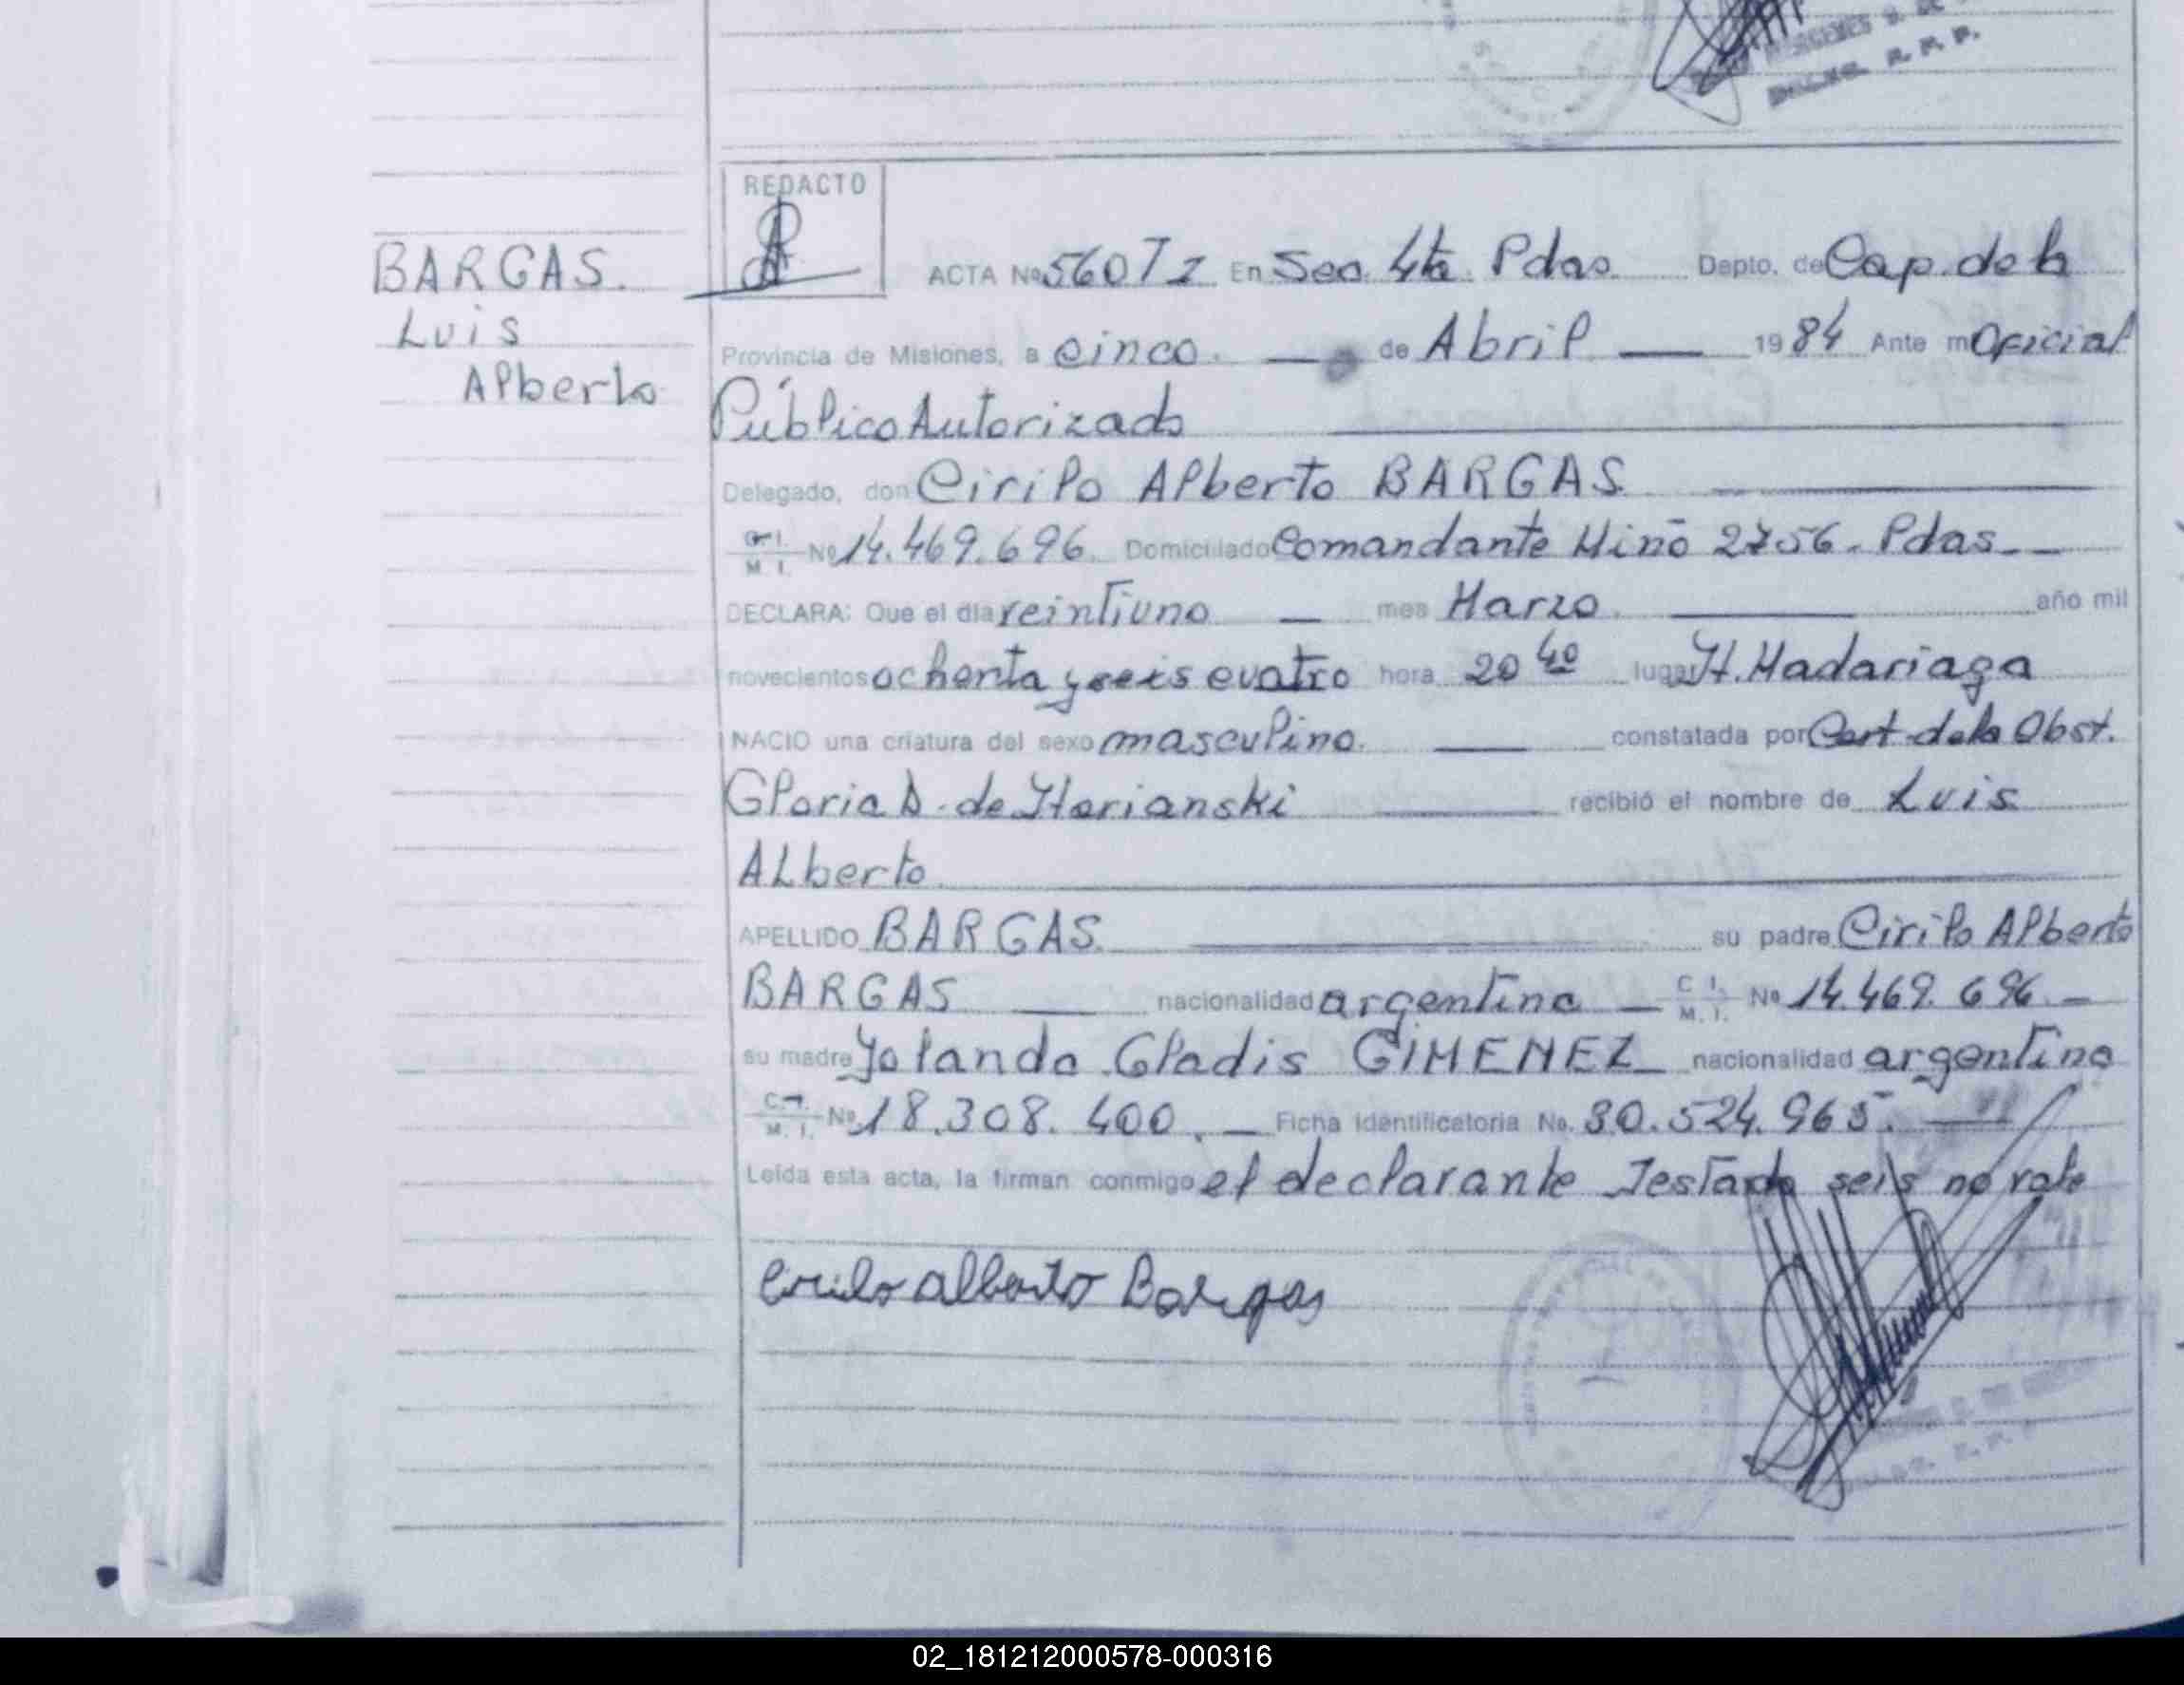 D. R. P. P.
REDACTO
BARGAS.
Luis
Alberto
ACTA Nº 560 T I En Sec. 4ta. Pdas. Depto. de Cap. de la
Provincia de Misiones, a cinco. — de Abril — 1984 Ante mi Oficial
Público Autorizado
Delegado, don Cirilo Alberto BARGAS
C. I. M. I. Nº 14.469.696. Domiciliado Comandante Miño 2756. Pdas. —
DECLARA: Que el día veintiuno — mes Marzo. año mil
novecientos ochenta y seis cuatro hora 20 40 lugar H. Madariaga
NACIO una criatura del sexo masculino. — constatada por Cert. de la Obst.
Gloria D. de recibió el nombre de Luis
ALberto
APELLIDO BARGAS. su padre Cirilo Alberto
BARGAS — nacionalidad argentina — C. I. M. I. Nº 14.469.696. —
su madre Yolanda Gladis GIMENEZ nacionalidad argentina
C. I. M. I. Nº 18.308.400. — Ficha Identificatoria No. 30.524.965. —
Leída esta acta, la firman conmigo el declarante Testado seis no vale
Cirilo alberto Bargas
02_181212000578-000316